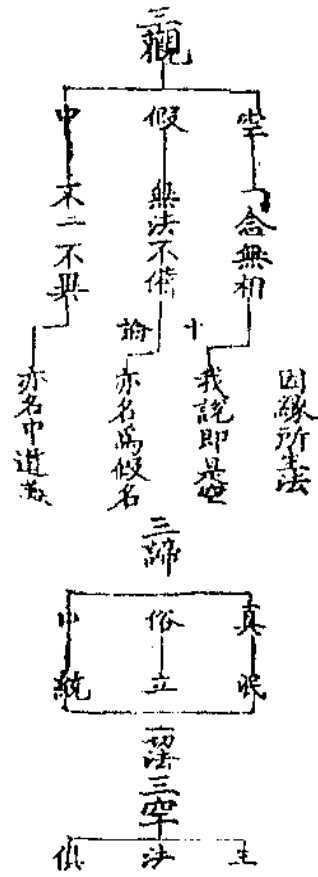 三觀
空 一念無相
假 無法不備
中 不二不異
中論
因緣所生法
我說即是空
亦名為假名
亦名中道義
三諦
真 泯
俗 立
中 統
一切法
三空
生 法 俱